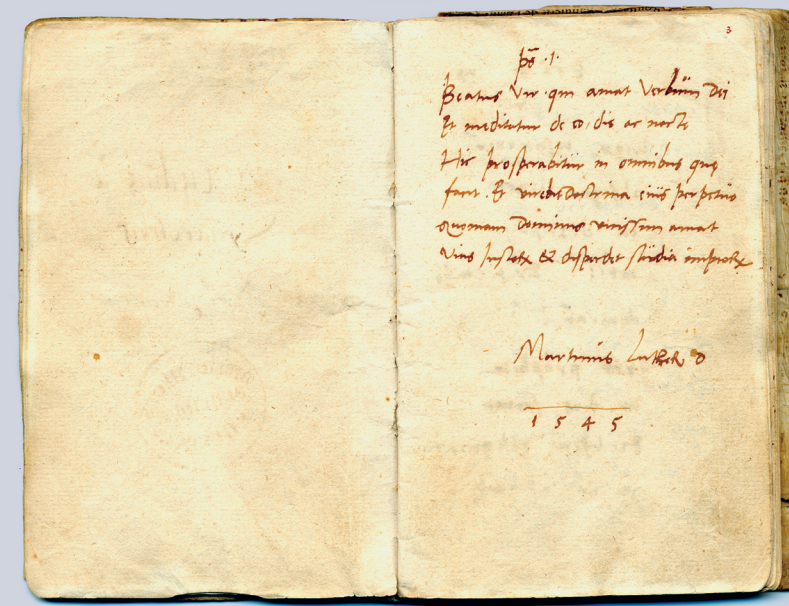 3
ps .1.
Beatus Vir qui amat Verbum Dei
Et meditatur de eo, die ac nocte
Hic prosperabitur in omnibus que
faciet. Et Doctrina eius perpetuo
Quoniam Dominus amat
Vias Justorum & disperdet studia impiorum
Martinus Luther D
1545